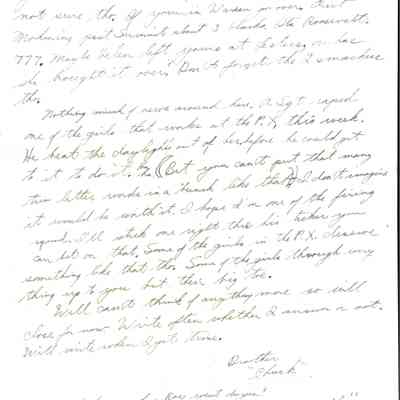 not sure, tho. If you're in Warren go over that
Mahoning past Summit about 3 blocks its Roosevelt.
777. Maybe Helen left yours at or has
she bought it over? Don't forget the 2 smackers
tho.
Nothing much of news around here. A Sgt. raped
one of the girls that works at the P.X. this week.
He beat the daylights out of her before he could get
to it to do it. tho (Bet you can't put that many
two letter words in a like that) I don't imagine
it would be worth it. I hope I'm one of the firing
squad. I'll stick one right thru his ticker you
can bet on that. Some of the girls in the P.X. deserve
something like that tho. Some of the girls through every
thing up to you but their big toe.
Well can't think of anything more so will
close for now. Write often whether I answer or not.
Will write when I get time.
Brother
"Chuck"